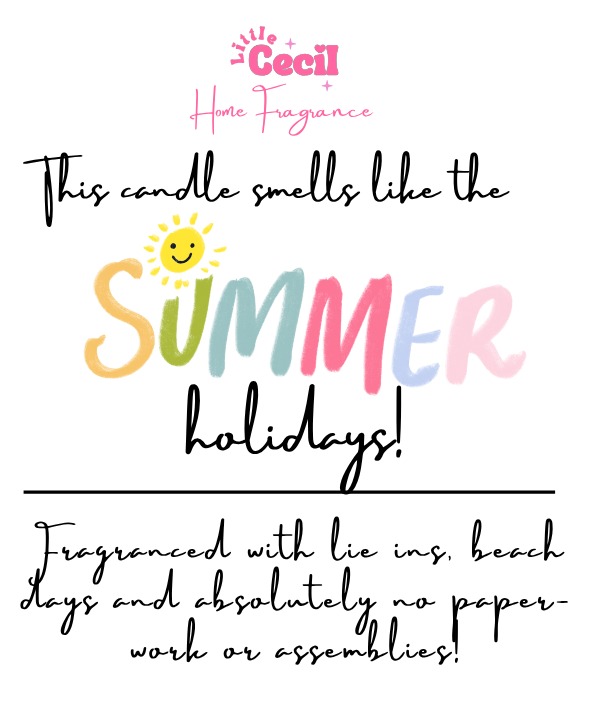 Little
Cecil
Home Fragrance
This candle smells like the
SUMMER
holidays!
Fragranced with lie ins, beach
days and absolutely no paper-
work or assemblies!